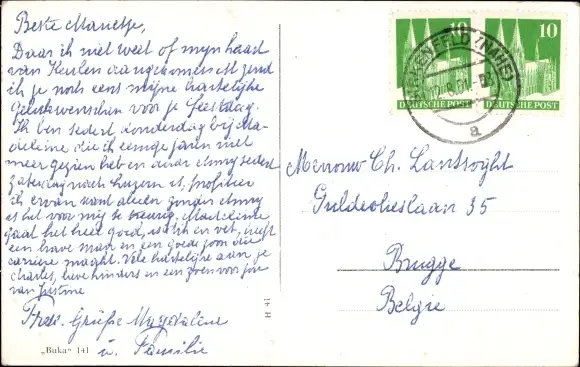 Beste Marietje,
Daar ik niet weet of mijn kaart
van Keulen aangekomen is zend
ik je nog eens mijne hartelijke
Gelukwenschen voor je feestdag.
Ik ben sedert donderdag bij Ma-
deleine die ik eenige jaren niet
meer gezien heb en daar
zaterdag naar Luzern is, profiteer
ik ervan want alleen zonder
is het voor mij te
gaat het heel goed, is dik en vet, heeft
een brave man en een goede zoon die
carriere maakt. Vele hartelijks aan je
Charles, lieve kinders en een zoen voor jou
van Justine
Grüße Magdalene
u. Familie
„Buka" 1+1
14 H
10 10
DEUTSCHE POST DEUTSCHE POST
(NAHE)
a
Mevrouw Ch. Lantsoght
Guldevlieslaan 35
Brugge
Belgie